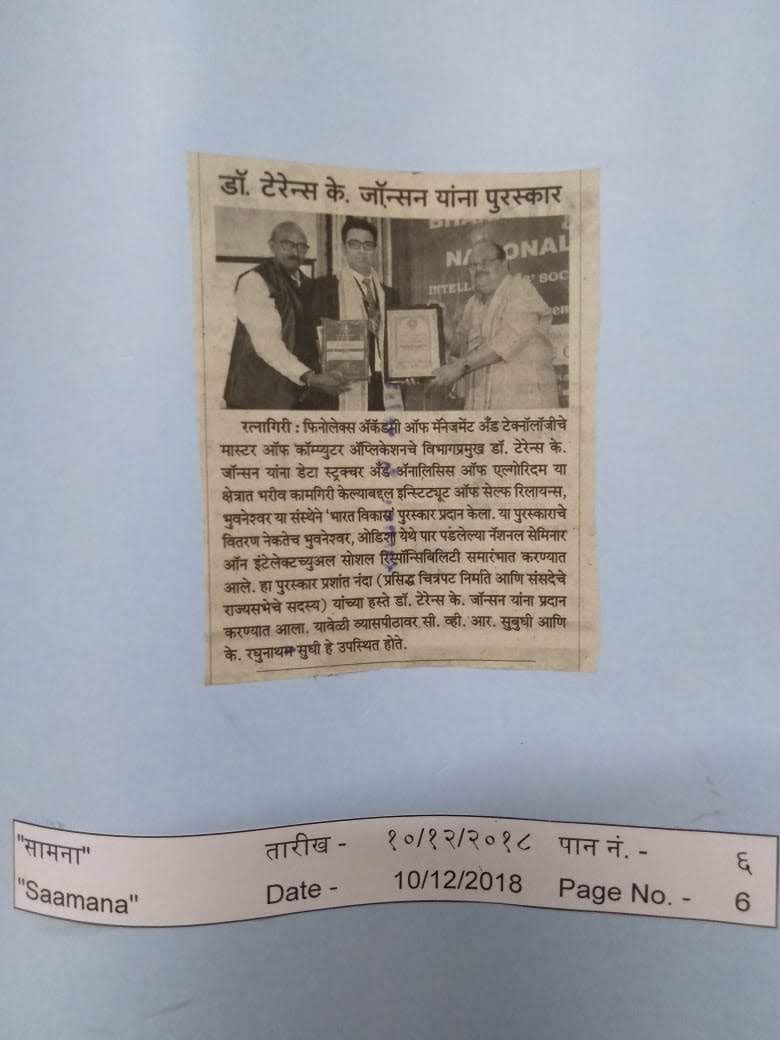 डॉ. टेरेन्स के. जॉन्सन यांना पुरस्कार
NATIONAL
रत्नागिरी : फिनोलेक्स अ‍ॅकॅडमी ऑफ मॅनेजमेंट अँड टेक्नॉलॉजीचे
मास्टर ऑफ कॉम्प्युटर अ‍ॅप्लिकेशनचे विभागप्रमुख डॉ. टेरेन्स के.
जॉन्सन यांना डेटा स्ट्रक्चर अँड अ‍ॅनालिसिस ऑफ एल्गोरिदम या
क्षेत्रात भरीव कामगिरी केल्याबद्दल इन्स्टिट्यूट ऑफ सेल्फ रिलायन्स,
भुवनेश्वर या संस्थेने 'भारत विकास' पुरस्कार प्रदान केला. या पुरस्काराचे
वितरण नेकतेच भुवनेश्वर, ओडिशा येथे पार पडलेल्या नॅशनल सेमिनार
ऑन इंटेलेक्टच्युअल सोशल रिस्पॉन्सिबिलिटी समारंभात करण्यात
आले. हा पुरस्कार प्रशांत नंदा (प्रसिद्ध चित्रपट निर्माते आणि संसदेचे
राज्यसभेचे सदस्य) यांच्या हस्ते डॉ. टेरेन्स के. जॉन्सन यांना प्रदान
करण्यात आला. यावेळी व्यासपीठावर सी. व्ही. आर. सुबुधी आणि
के. रघुनाथम सुधी हे उपस्थित होते.
"सामना" तारीख - १०/१२/२०१८ पान नं. - ६
"Saamana" Date - 10/12/2018 Page No. - 6